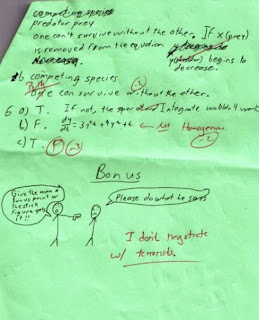 competing species
predator prey
one can't survive without the other. If x (prey)
is removed from the equation begins to
decrease. decrease.
b competing species
One can survive without the other.
-2
6 a) T. If not, the Integrate wouldn't work
b) F. dy/dt = 3y²+4y²+t ← Not Homogenous.
-2
c) T. F -3
Bonus
Give the man a
bonus point or
the stick
figure gets
it!!
Please do what he says
I don't negotiate
w/ terrorists.